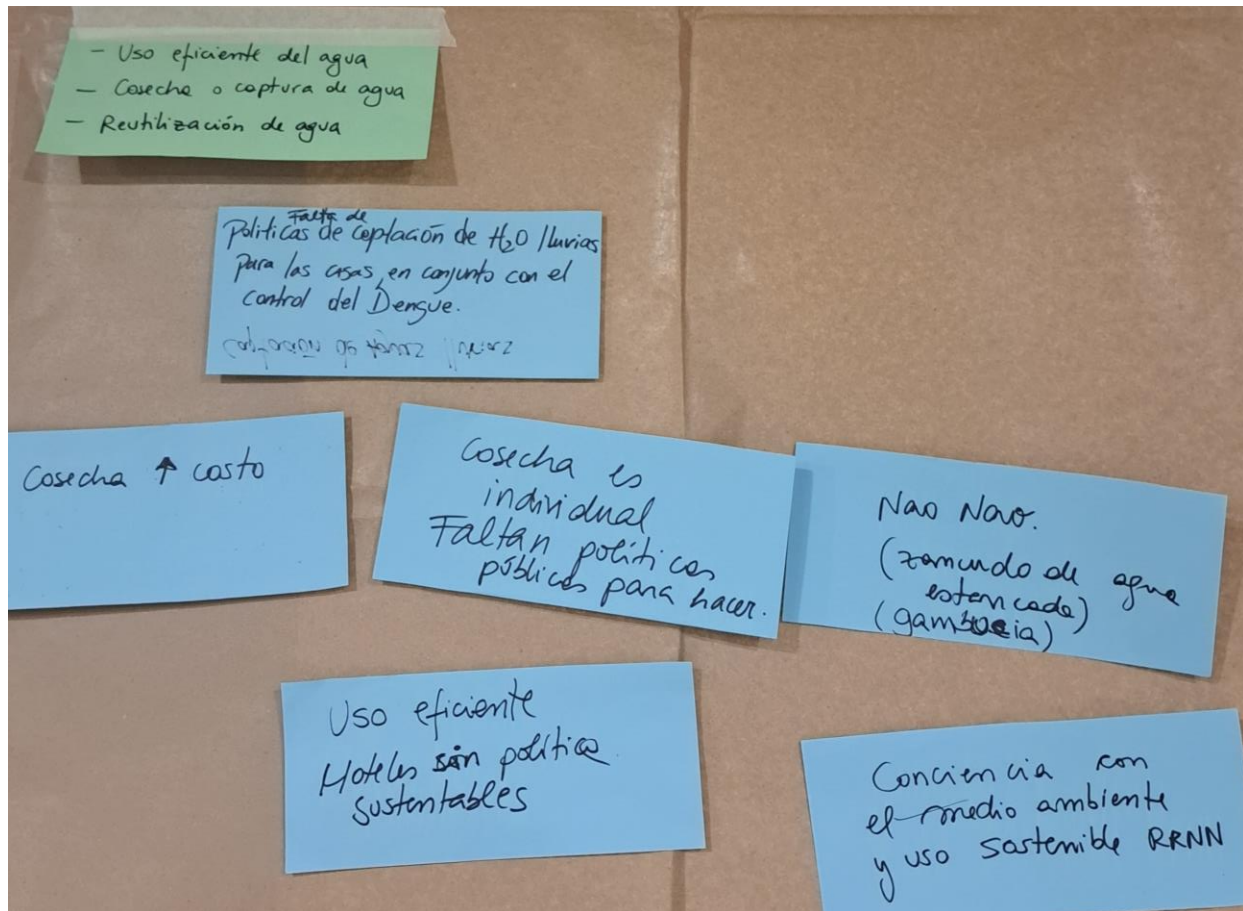 - Uso eficiente del agua
- Cosecha o captura de agua
- Reutilización de agua
Falta de
Politicas de captación de H2O lluvias
para las casas, en conjunto con el
control del Dengue.
Cosecha ↑ costo
Cosecha es
individual
Faltan políticas
públicas para hacer.
Nao Nao.
(zancudo de agua
estancada)
(gambucia)
Uso eficiente
Hoteles sin politica
sustentables
Conciencia con
el medio ambiente
y uso sostenible RRNN